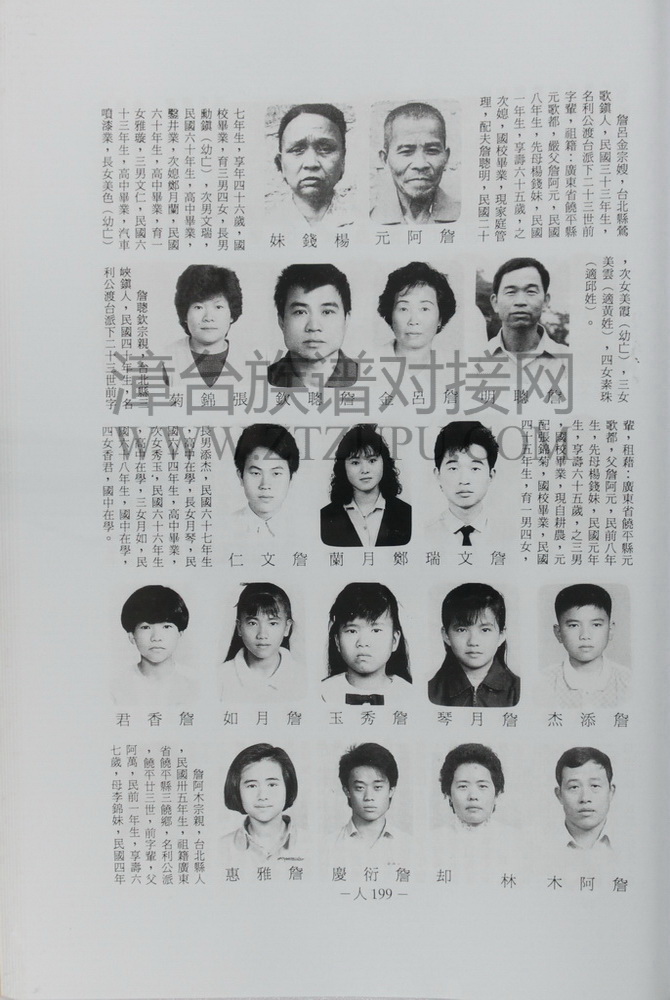 詹呂金宗嫂，台北縣鶯
歌鎮人，民國三十三年生，
名利公渡台派下二十三世前
字輩，祖籍：廣東省饒平縣
元歌都，嚴父詹阿元，民國
八年生，先母楊錢妹，民國
一年生，享壽六十五歲，之
次媳，國校畢業，現家庭管
理，配夫詹聰明，民國二十
七年生，享年四十六歲，國
校畢業，育三男四女，長男
勳鎮（幼亡），次男文瑞，
民國六十年生，高中畢業，
鑿井業，次媳鄭月蘭，民國
六十年生，高中畢業，育一
女雅璇，三男文仁，民國六
十三年生，高中畢業，汽車
噴漆業，長女美色（幼亡）
詹阿元
楊錢妹
，次女美霞（幼亡），三女
美雲（適黃姓），四女素珠
（適邱姓）。
詹聰明
詹呂金
詹聰欽
張錦菊
詹聰欽宗親，台北縣三
峽鎮人，民國四十年生，名
利公渡台派下二十三世前字
輩，祖藉：廣東省饒平縣元
歌都，父詹阿元，民前八年
生，先母楊錢妹，民國元年
生，享壽六十五歲，之三男
，國校畢業，現自耕農，元
配張錦菊，國校畢業，民國
四十五年生，育一男四女，
詹文瑞
鄭月蘭
詹文仁
長男添杰，民國六十七年生
，高中在學，長女月琴，民
國六十四年生，高中畢業，
次女秀玉，民國六十六年生
，高中在學，三女月如，民
國六十八年生，國中在學，
四女香君，國中在學。
詹添杰
詹月琴
詹秀玉
詹月如
詹香君
詹阿木
林却
詹衍慶
詹雅惠
詹阿木宗親，台北縣人
，民國卅五年生，祖籍廣東
省饒平縣三饒鄉，名利公派
，饒平廿三世，前字輩，父
阿萬，民前一年生，享壽六
七歲，母李錦妹，民國四年
－人199－
漳台族谱对接网
WWW.ZTZUPU.COM